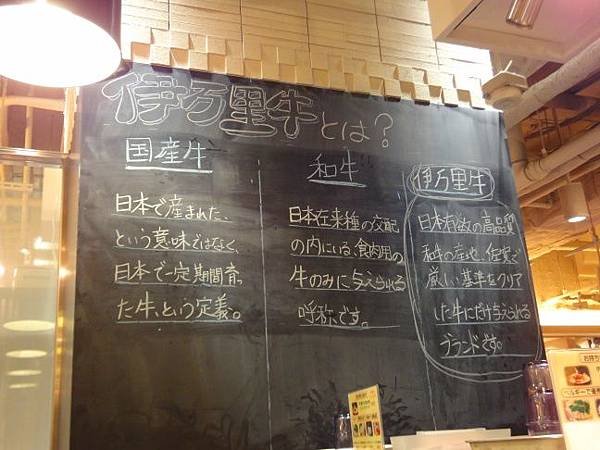 伊万里牛とは？
国産牛
日本で産まれた、
という意味ではなく、
日本で一定期間育っ
た牛、という定義。
和牛
日本在来種の交配
の内にいる、食肉用の
牛のみに与えられる
呼称です。
伊万里牛
日本有数の高品質
和牛の産地、佐賀で
厳しい基準をクリア
した牛にだけ与えられる
ブランドです。